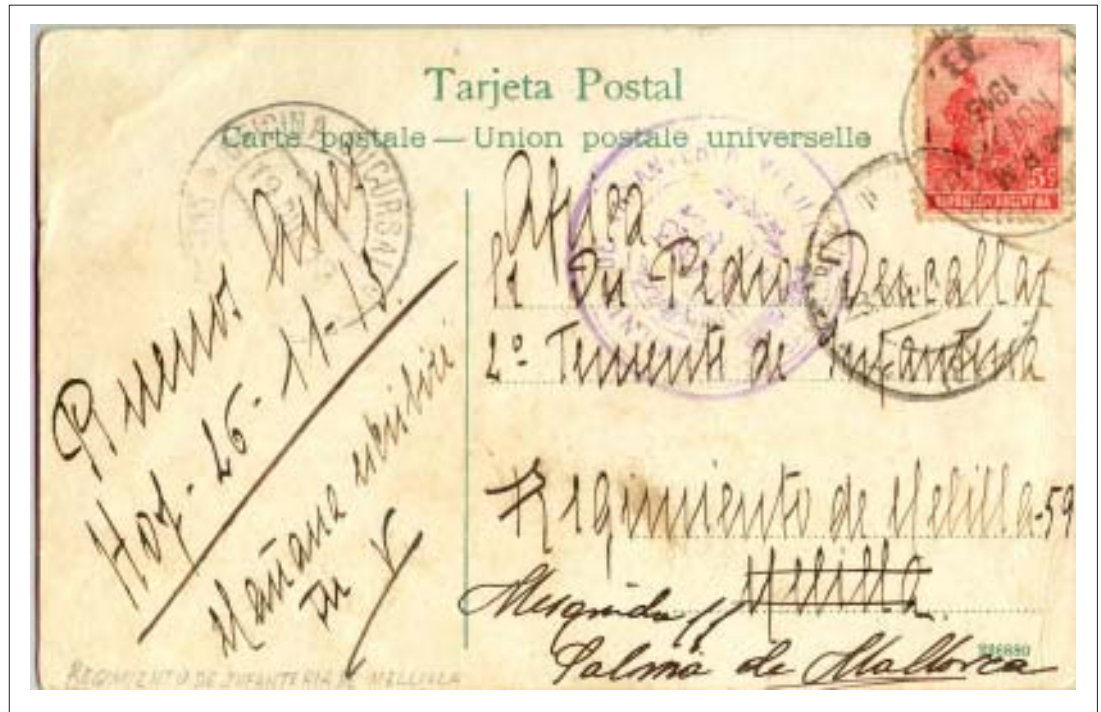 Tarjeta Postal
Carte postale — Union postale universelle
Buenos Aires
Hoy - 26 - 11 - 15.
Mañana escribiré
Africa
Dn Pedro Descallar
2º Teniente de Infantería
Regimiento de Melilla-59
Melilla.
Palma de Mallorca
REGIMIENTO DE INFANTERIA DE MELLILLA
SUCURSAL
NOV
1915
5 c
REPUBLICA ARGENTINA